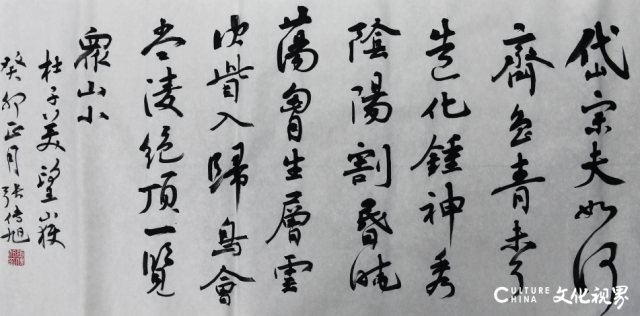 岱宗夫如何
齊魯青未了
造化鍾神秀
陰陽割昏曉
蕩胷生層雲
決眥入歸鳥會
當凌絕頂一覽
眾山小
杜子美望嶽
癸卯正月張傳旭
CULTURE CHINA 文化视界